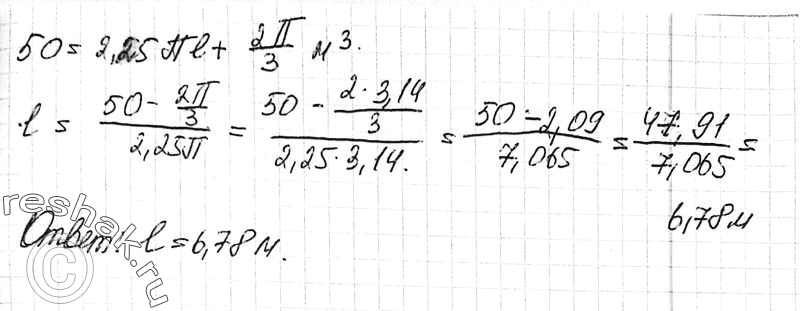 50 = 2,25 πl + 2π/3 м³.
l = (50 - 2π/3)/(2,25π) = (50 - (2·3,14)/3)/(2,25·3,14.) = (50 - 2,09)/7,065 = 47,91/7,065 =
6,78м
Ответ: l = 6,78м.
reshak.ru
©